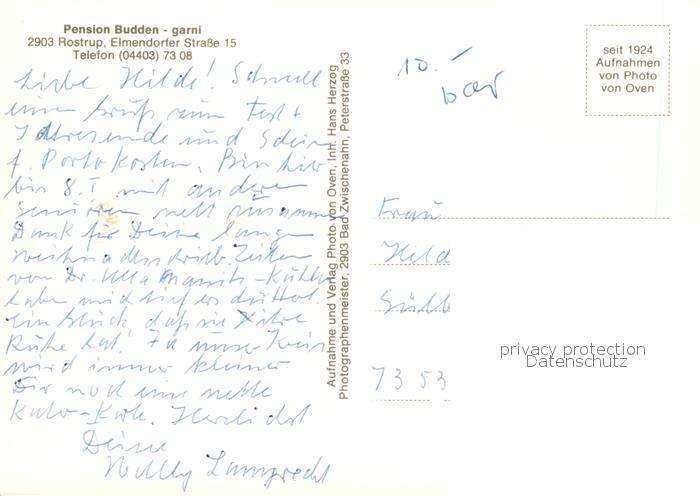 Pension Budden - garni
2903 Rostrup, Elmendorfer Straße 15
Telefon (04403) 73 08
Liebe Hilde! Schnell
einen Gruß zum Fest +
Jahresende und Schein
f. Portokosten. Bin hier
bis 8. I mit anderen
Senioren nett zusammen
Dank für Deine lange
von Dr. Ulla
haben mich tief
ein Glück, daß sie
Ruhe hat. Ja unser Kreis
wird immer kleiner
Dir noch eine nette
Karte. Herzlichst
Deine
Willy Lamprecht
Aufnahme und Verlag Photo von Oven, Inh. Hans Herzog
Photographenmeister, 2903 Bad Zwischenahn, Peterstraße 33
10.-
bar
seit 1924
Aufnahmen
von Photo
von Oven
Frau
Hild
73 53
privacy protection
Datenschutz